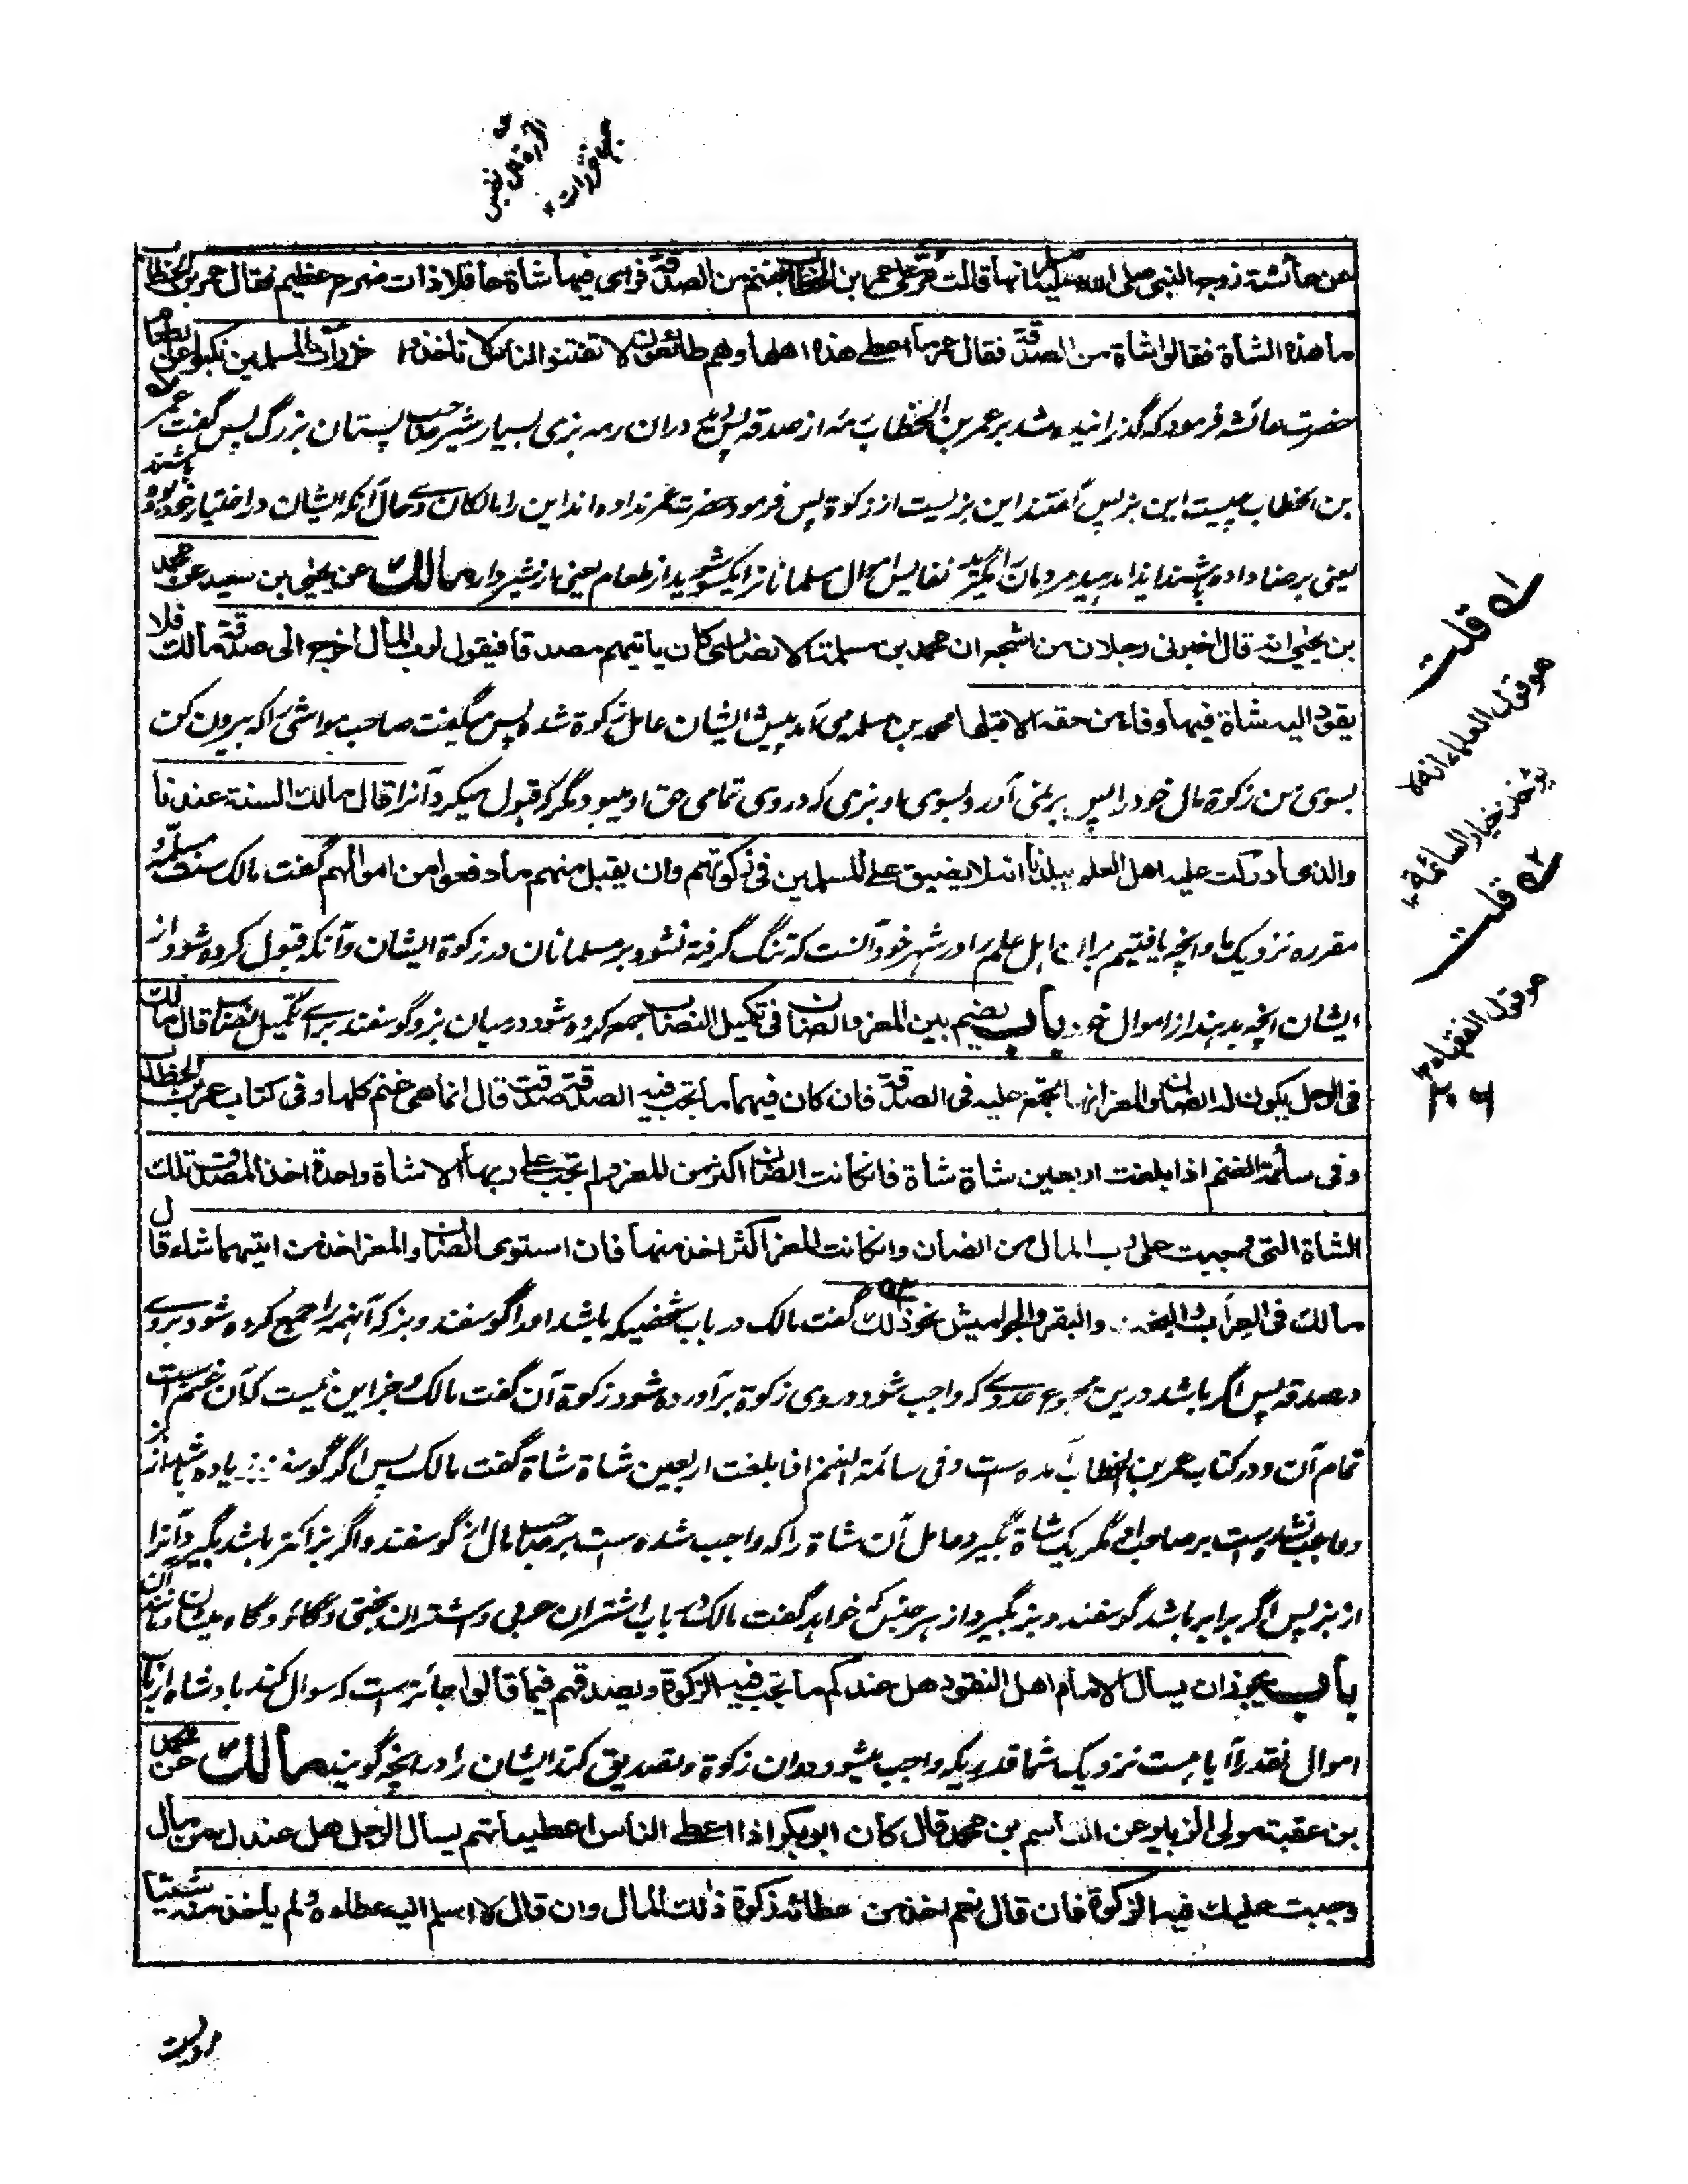 عن عائشة زوج النبي صلى الله عليه وسلم انها قالت مُرَّ على عمر بن الخطاب بغنم من الصدقة فرأى فيها شاة حافلا ذات ضرع عظيم فقال عمر بن الخطاب
ما هذه الشاة فقالوا شاة من الصدقة فقال عمر ما اعطى هذه اهلها وهم طائعون لا تفتنوا الناس لا تاخذوا حزرات المسلمين نكبوا عن الطعام
حضرت عائشه فرمود كه گذرانيده شد بر عمر بن الخطاب رمه از صدقه پس ديد دران رمه بزى بسيار شير صاحب پستان بزرگ پس گفت عمر
بن الخطاب چيست اين بز پس گفتند اين بزيست از زكوة پس فرمود حضرت عمر نداده اند اين را مالكان وے حال آنكه ايشان در اختيار خود باشند
يعنى برضا داده باشند ايذا مدهيد مردمان را مگيريد نفايس اموال مسلمانان را يكسو شويد از طعام يعنى از شيردار مالك عن يحيى بن سعيد عن محمد
بن يحيى انه قال اخبرنى رجلان من اشجع ان محمد بن مسلمة الانصارى كان ياتيهم مصدقا فيقول لرب المال اخرج الى صدقة مالك فلا
يقود اليه شاة فيها وفاء من حقه الا قبلها محمد بن مسلمه مى آمد پيش ايشان عامل زكوة شده پس ميگفت صاحب مواشى را كه بيرون كن
بسوى من زكوة مال خود را پس بر نمى آورد بسوى او بزى كه در وى تمامى حق او ميبود مگر كه قبول ميكرد آنرا قال مالك السنة عندنا
والذى ادركت عليه اهل العلم ببلدنا انه لا يضيق على المسلمين فى زكوتهم وان يقبل منهم ما دفعوا من اموالهم گفت مالك سنت مسلمه و
مقرره نزديك ما و آنچه يافتيم بر آن اهل علم را در شهر خود آنست كه تنگ گرفته نشود بر مسلمانان در زكوة ايشان و آنكه قبول كرده شود از
ايشان آنچه بدهند از اموال خود باب يضم بين المعز والضان فى تكميل النصاب جمع كرده شود درميان بز و گوسفند براے تكميل نصاب قال مالك
فى الرجل يكون له الضان والمعز انها تجمع عليه فى الصدقة فان كان فيهما ما تجب فيه الصدقة صدقت قال انما هى غنم كلها وفى كتاب عمر بن الخطاب
وفى سائمة الغنم اذا بلغت اربعين شاة شاة فان كانت الضان اكثر من المعز ولم تجب على ربها الا شاة واحدة اخذ المصدق تلك
الشاة التى وجبت على رب المال من الضان وان كانت المعز اكثر اخذ منها فان استوى الضان والمعز اخذ من ايتهما شاء قال
مالك فى العراب والبخت والبقر والجواميس نحو ذلك گفت مالك در باب شخصيكه باشد او را گوسفند و بز كه آنهمه را جمع كرده شود بروے
در صدقه پس اگر باشد درين مجموع عددے كه واجب شود در وى زكوة برآورده شود زكوة آن گفت مالك جز اين نيست كه آن غنم است
تمام آن و در كتاب عمر بن الخطاب آمده ست وفى سائمة الغنم اذا بلغت اربعين شاة شاة گفت مالك پس اگر گوسفند زياده باشد از بز
و واجب نشده است بر صاحب او مگر يك شاة بگيرد عامل آن شاة را كه واجب شده ست بر صاحب مال از گوسفند و اگر بز اكثر باشد بگيرد آنرا
از بز پس اگر برابر باشد گوسفند و بز بگيرد از هر جنس كه خواهد گفت مالك در باب اشتران عربى و اشتران بختى و گاو و گاوميشان مانند آن
باب يجوز ان يسال الامام اهل النقود هل عندكم ما تجب فيه الزكوة ويصدقهم فيما قالوا جائز است كه سوال كند بادشاه ارباب
اموال نقد را آيا هست نزديك شما قدريكه واجب ميشود دران زكوة و تصديق كند ايشان را در آنچه گويند مالك عن محمد
بن عقبة مولى الزبير عن القاسم بن محمد قال كان ابو بكر اذا اعطى الناس اعطياتهم يسال الرجل هل عندك من مال
وجبت عليك فيه الزكوة فان قال نعم اخذ من عطائه زكوة ذلك المال وان قال لا اسلم اليه عطاءه ولم ياخذ منه شيئا
قلت
هو قول العلماء انه لا
يوخذ خيار السائمة
قلت
هو قول الفقهاء